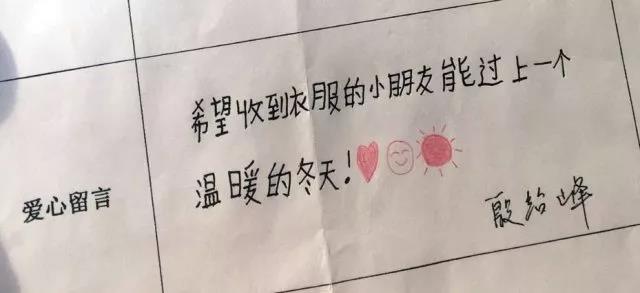 希望收到衣服的小朋友能过上一个
温暖的冬天!
爱心留言
殷绍峰